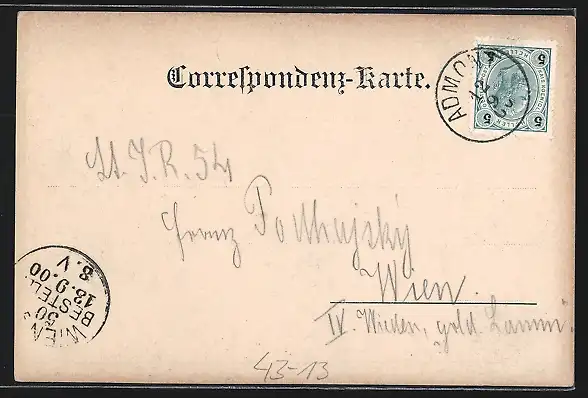 Correspondenz-Karte.
ADMONT
12
5 HELLER 5
Lt. I. R. 54
Franz
Wien.
IV. Wieden, „gold. Lamm“
WIEN
50
BESTELLT
13.9.00
8.V
43-13